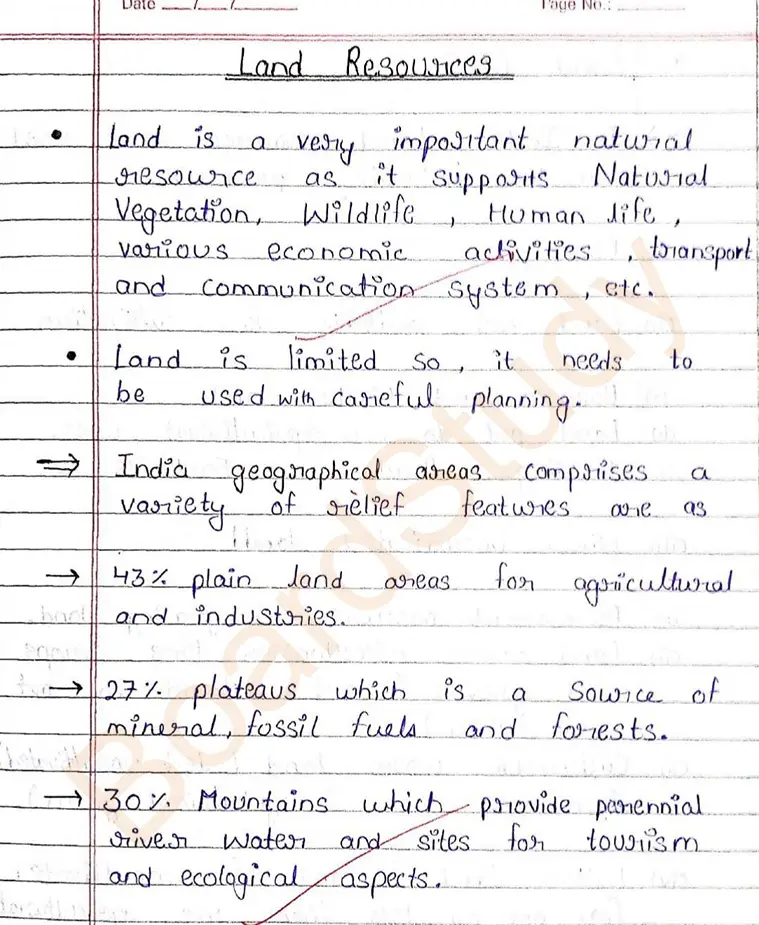 Date ___/___/___ Page No.: ______
Land Resources
• Land is a very important natural
resource as it supports Natural
Vegetation, Wildlife, Human life,
various economic activities, transport
and communication system, etc.
• Land is limited so, it needs to
be used with careful planning.
⇒ India geographical areas comprises a
variety of relief features are as
→ 43% plain land areas for agricultural
and industries.
→ 27% plateaus which is a source of
mineral, fossil fuels and forests.
→ 30% Mountains which provide parennial
river water and sites for tourism
and ecological aspects.
BoardStudy